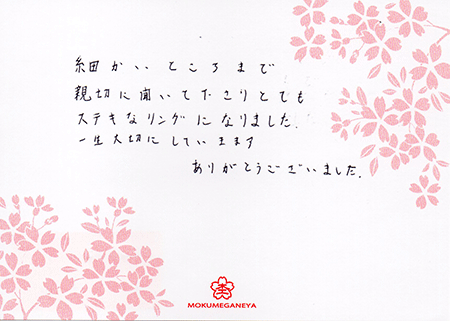 細かいところまで
親切に聞いて下さりとても
ステキなリングになりました.
一生大切にしていきます
ありがとうございました.
MOKUMEGANEYA